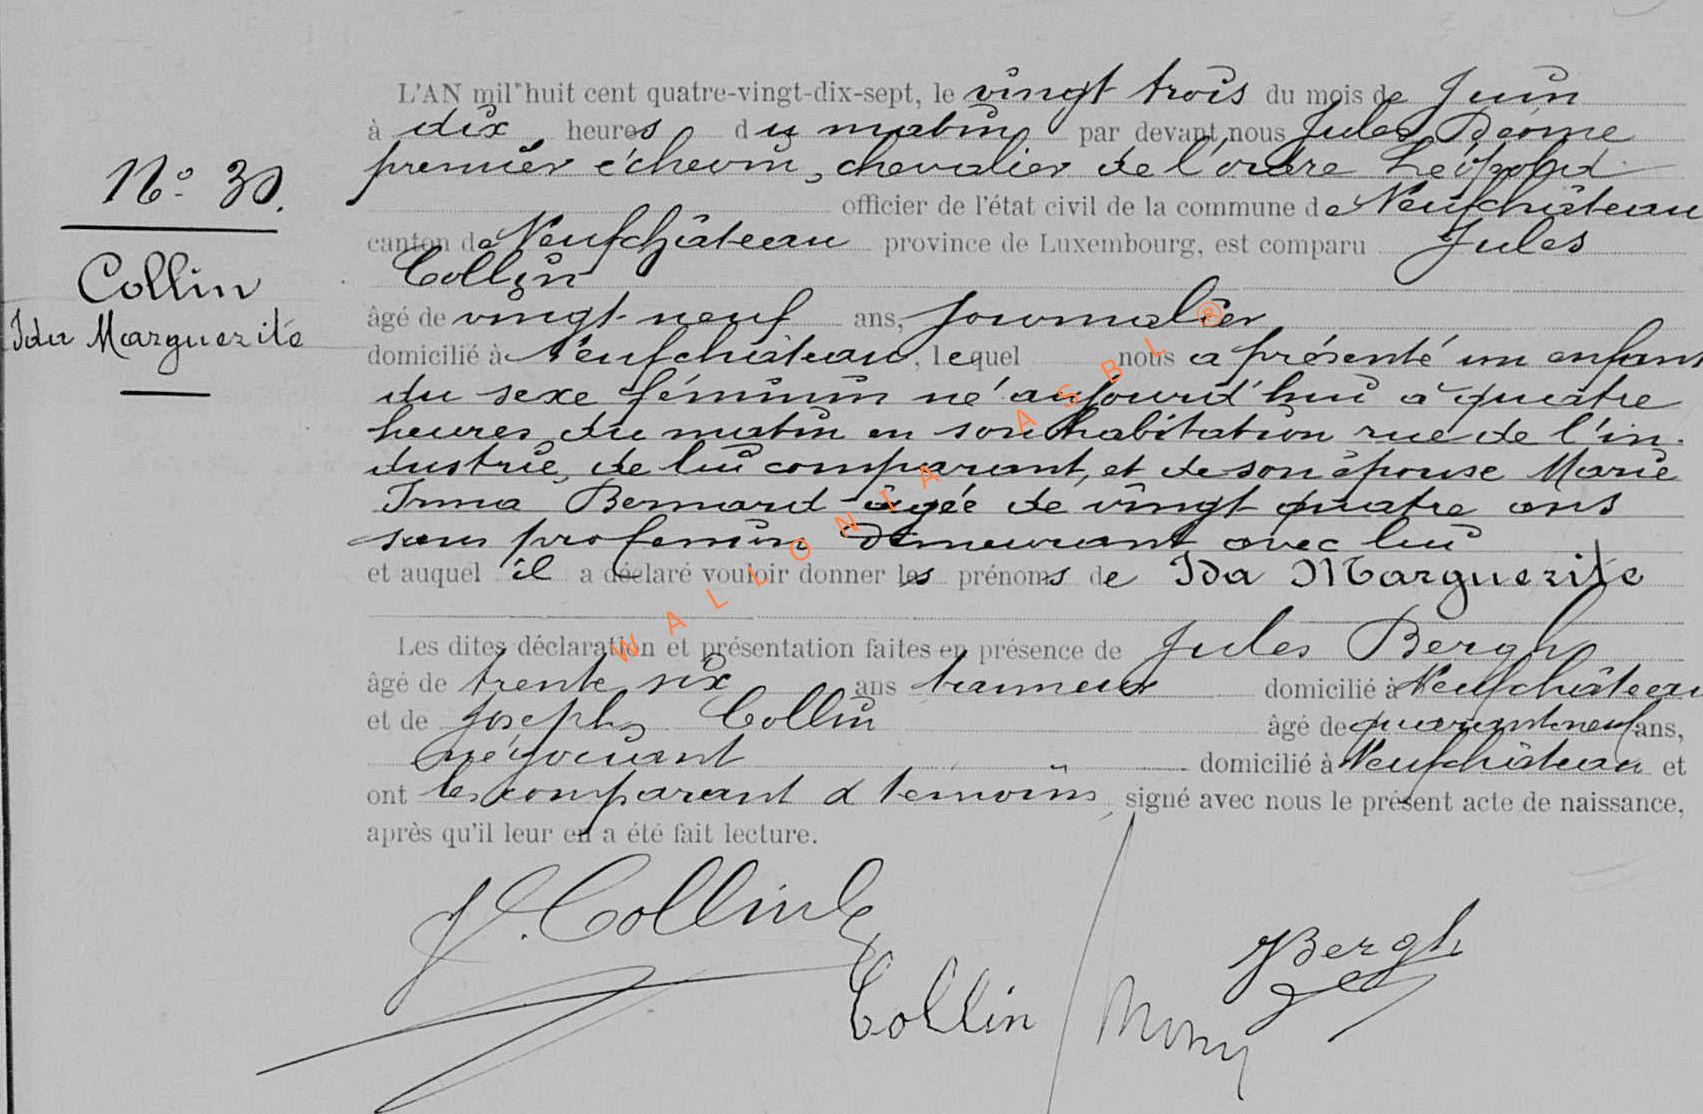 N° 30.
Collin
Ida Marguerite
L'AN mil huit cent quatre-vingt-dix-sept, le vingt trois du mois de Juin
à dix heures du matin par devant nous Jules
premier échevin, chevalier de l'ordre Léopold
officier de l'état civil de la commune de Neufchâteau
canton de Neufchâteau province de Luxembourg, est comparu Jules
Collin
âgé de vingt-neuf ans, journalier
domicilié à Neufchâteau, lequel nous a présenté un enfant
du sexe féminin né aujourd'hui à quatre
heures du matin en son habitation rue de l'in-
dustrie, de lui comparant, et de son épouse Marie
Irma Bernard âgée de vingt quatre ans
sans profession demeurant avec lui
et auquel il a déclaré vouloir donner les prénoms de Ida Marguerite
Les dites déclaration et présentation faites en présence de Jules Bergh
âgé de trente six ans tanneur domicilié à Neufchâteau
et de Joseph Collin âgé de quarante neuf ans,
négociant domicilié à Neufchâteau et
ont les comparant & témoins signé avec nous le présent acte de naissance,
après qu'il leur en a été fait lecture.
J. Collin
JBergh
Collin
WALLONIA ASBL ®